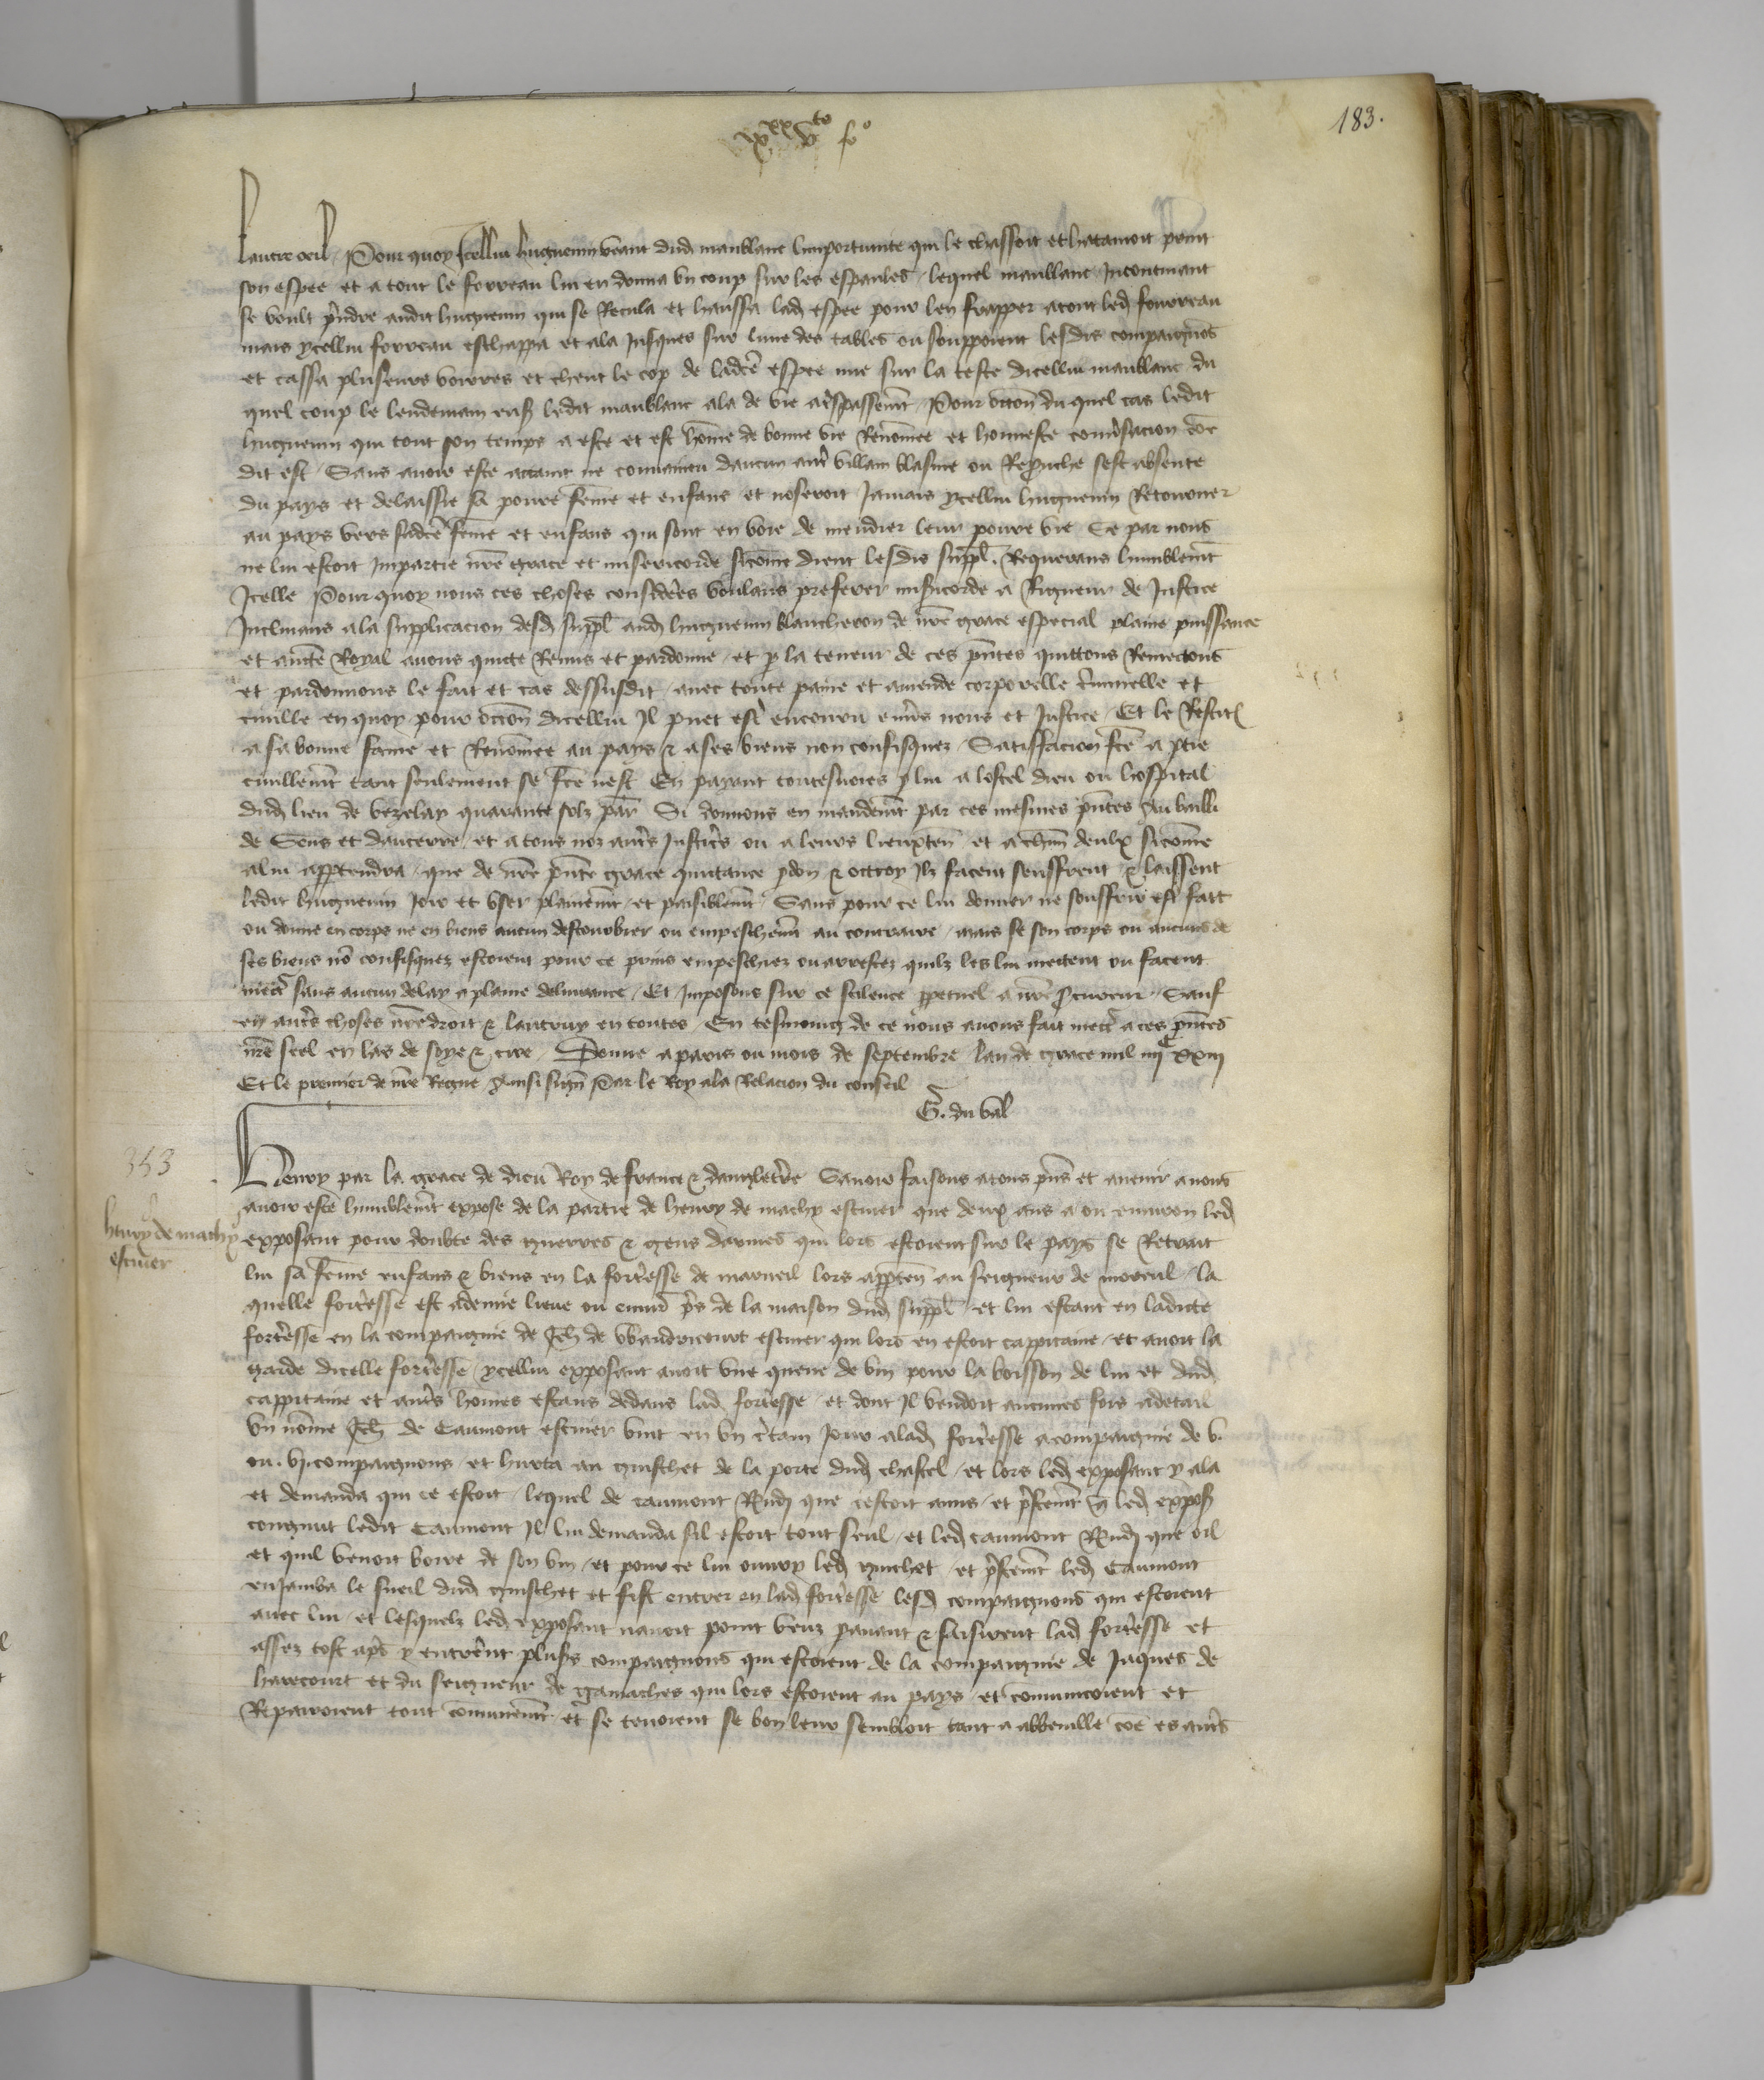 183.
ix xx v to fo
lautre oeil Pour quoy Icellui huguenin veant dud maublanc limportunite qui le chassoit et hatamoit print
son espee et a tout le forreau lui en donna vn coup sur les espaules / lequel maublanc Incontinant
se voult prndre audit huguenin qui se Recula et haussa lad espee pour len frapper atout led fourreau
mais ycellui forreau eschappa et ala Jusques sur lune des tables ou souppoient lesdis compaignos
et cassa pluseurs voirres et cheut le cop de ladce espee nue sur la teste dicellui maublanc du
quel coup le lendemain ens ledit maublanc ala de vie a trspassemt / Pour occon du quel cas ledit
huguenin qui tout son temps a este et est home de bonne vie Renomee et honneste conusacion coe
dit est / Sans auoir este attaint ne conuaincu daucun autr villain blasme ou Reprouche sest absente
du pays et delaissie sa poure feme et enfans et noseroit Jamais ycellui huguenin Retourner
au pays vers sadce feme et enfans qui sont en voie de mendier leur poure vie Se par nous
ne lui estoit Impartie nre grace et misericorde sicome dient lesdis suppl. Requerans humblemt
Icelle Pour quoy nous ces choses considerees voulans preferer misicorde a Rigueur de Justice
Inclinans ala supplicacion desd suppl aud huguenin blancheron de nre grace especial plaine puissance
et aucte Royal auons quicte Remis et pardonne / et p la teneur de ces pntes quittons Remectons
et pardonnons le fait et cas dessusdit / auec toute paine et amende corporelle criminelle et
ciuille en quoy pour occon dicellui Il puet estr encouru enuers nous et Justice / Et le Restit
a sa bonne fame et Renomee au pays & a ses biens non confisquez / Satisfacion fce a ptie
ciuillemt tant seulement se fce nest En payant toutesuoies p lui a lostel dieu ou hospital
dud lieu de vezelay quarante solz par Si donnons en mandemt par ces mesmes pntes Au bailli
de Sens et dauccerre / et a tous noz autrs Justicrs ou a leurs lieuxten et a chun deulx sicome
a lui appartendra / que de nre pnte grace quittance pdon & octroy Ilz facent seuffrent & laissent
ledit huguenin Joir et vser plainemt et paisiblemt / Sans pour ce lui donner ne souffrir estr fait
ou donne en corps ne en biens aucun destourbier ou empeschemt au contraire / mais se son corps ou aucuns de
ses biens no confisquez estoient pour ce prins empeschiez ou arrestez quilz les lui mectent ou facent
mectr sans aucun delay a plaine deliurance / Et Imposons sur ce scilence ppetuel a nre pcureur / Sauf
en autrs choses nre droit & lautruy en toutes / En tesmoing de ce nous auons fait mectr a ces pntes
nre seel en las de soye & cire / Donne a paris ou mois de septembre lan de grace mil iiiic xxiii
Et le premier de nre Regne Ainsi signe Par le Roy ala Relacion du conseil
G. du val
353
henry de machy
escuier
Henry par la grace de dieu Roy de france & dangleterre Sauoir faisons a tous pns et auenir a nous
auoir este humblemt expose de la partie de henry de machy escuier que deux ans a ou enuiron led
exposant pour doubte des guerres & gens darmes qui lors estoient sur le pays se Retrait
lui sa feme enfans & biens en la fortresse de mareuil lors apparten au seigneur de moreul / la
quelle fortresse est a demie lieue ou enuir prs de la maison dud suppl et lui estant en ladicte
fortresse en la compaignie de Jeh de Waudricourt escuier qui lors en estoit cappitaine / et auoit la
garde dicelle fortresse / ycellui exposant auoit vne queue de vin pour la boisson de lui et dud
cappitaine et autrs homes estans dedans lad fortresse / et dont Il vendoit aucunes fois a detail
vn nome Jeh de Caumont escuier vint en vn crtain Jour alad fortresse acompaignie de v.
ou. vj. compaignons / et hurta au guischet de la porte dud chastel / et lors led exposant y ala
et demanda qui ce estoit / lequel de caumont Rndi que cestoit amis / et prestemt q led expos
congnut ledit Caumont Il lui demanda sil estoit tout seul / et led caumont Rndi que oil
et quil venoit boire de son vin / et pour ce lui ouury led guichet / et prestemt led Caumont
enjamba le sueil dud guischet et fist entrer en lad fortresse lesd compaignons qui estoient
auec lui / et lesquelz led exposant nauoit point veuz parauant & saisirent lad fortresse et
assez tost aprs y entrerent plusrs compaignons qui estoient de la compaignie de Jaques de
harecourt et du seigneur de gamaches qui lors estoient au pays / et comunicoient et
Repairoient tout comunemt et se tenoient se bon leur sembloit tant a abbeuille coe es autrs